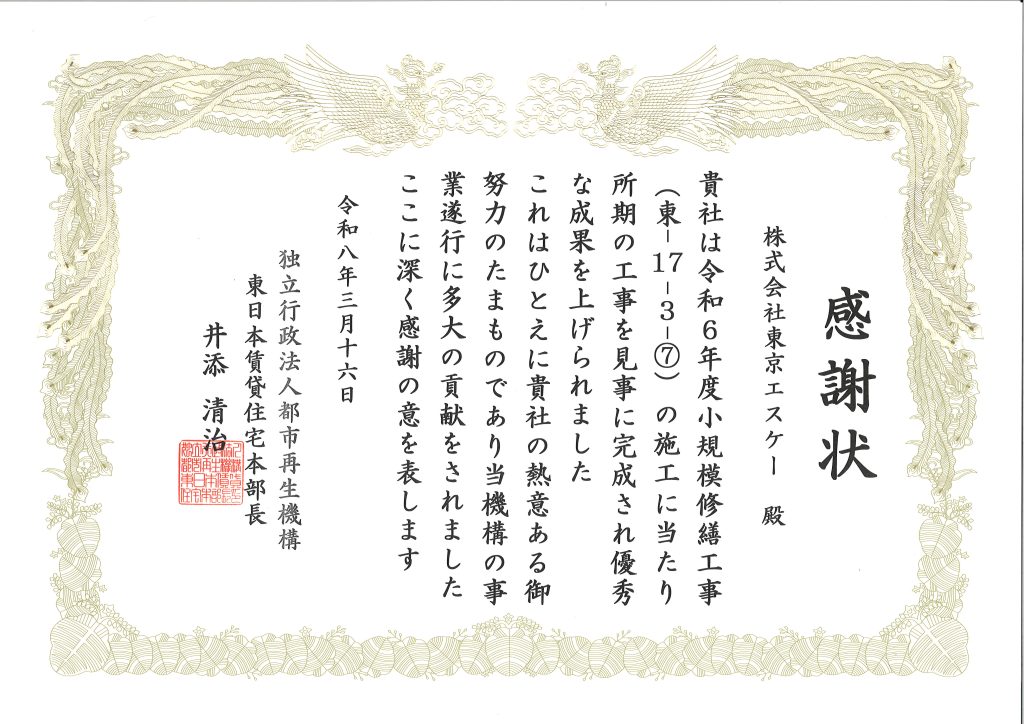 感謝状
株式会社東京エスケー　殿
貴社は令和６年度小規模修繕工事
（東－17－３－⑦）の施工に当たり
所期の工事を見事に完成され優秀
な成果を上げられました
これはひとえに貴社の熱意ある御
努力のたまものであり当機構の事
業遂行に多大の貢献をされました
ここに深く感謝の意を表します
令和八年三月十六日
独立行政法人都市再生機構
東日本賃貸住宅本部長
井添　清治